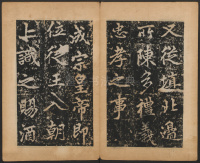 又從趙北邊
所陳多禮義
忠孝之事
成宗皇帝即
位從王入朝
上識之賜酒